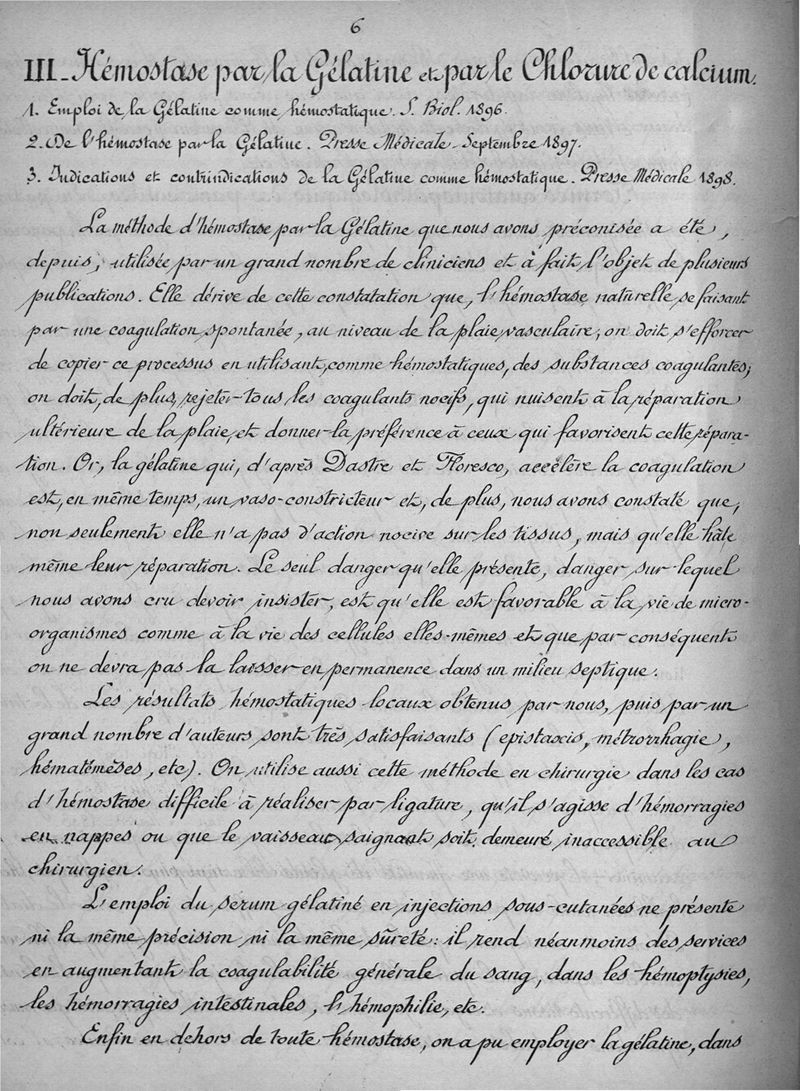 6
III_ Hémostase par la Gélatine et par le Chlorure de calcium.
1. Emploi de la Gélatine comme hémostatique. S. Biol. 1896.
2. De l'hémostase par la Gélatine. Presse Médicale. Septembre 1897.
3. Indications et contrindications de la Gélatine comme hémostatique. Presse Médicale 1898.
La méthode d'hémostase par la Gélatine que nous avons préconisée a été,
depuis, utilisée par un grand nombre de cliniciens et à fait l'objet de plusieurs
publications. Elle dérive de cette constatation que, l'hémostase naturelle se faisant
par une coagulation spontanée, au niveau de la plaie vasculaire, on doit s'efforcer
de copier ce processus en utilisant, comme hémostatiques, des substances coagulantes;
on doit, de plus, rejeter tous les coagulants nocifs, qui nuisent à la réparation
ultérieure de la plaie, et donner la préférence à ceux qui favorisent cette répara-
tion. Or, la gélatine qui, d'après Dastre et Floresco, accélère la coagulation
est, en même temps, un vaso-constricteur et, de plus, nous avons constaté que,
non seulement elle n'a pas d'action nocive sur les tissus, mais qu'elle hâte
même leur réparation. Le seul danger qu'elle présente, danger sur lequel
nous avons cru devoir insister, est qu'elle est favorable à la vie de micro-
organismes comme à la vie des cellules elles-mêmes et que par conséquent
on ne devra pas la laisser en permanence dans un milieu septique.
Les résultats hémostatiques locaux obtenus par nous, puis par un
grand nombre d'auteurs sont très satisfaisants (epistaxis, métrorrhagie,
hématémèses, etc). On utilise aussi cette méthode en chirurgie dans les cas
d'hémostase difficile à réaliser par ligature, qu'il s'agisse d'hémorragies
en nappes ou que le vaisseau saignant soit demeuré inaccessible au
chirurgien.
L'emploi du serum gélatiné en injections sous-cutanées ne présente
ni la même précision ni la même sûreté: il rend néanmoins des services
en augmentant la coagulabilité générale du sang, dans les hémoptysies,
les hémorragies intestinales, l'hémophilie, etc.
Enfin en dehors de toute hémostase, on a pu employer la gélatine, dans